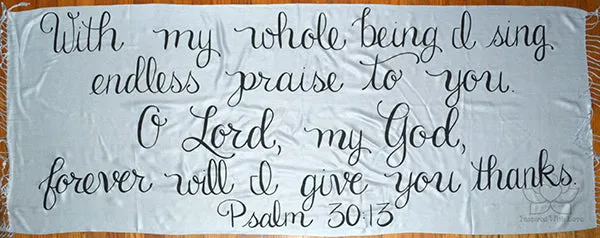 With my whole being I sing
endless praise to you.
O Lord, my God,
forever will I give you thanks.
Psalm 30:13
Inspired With Love